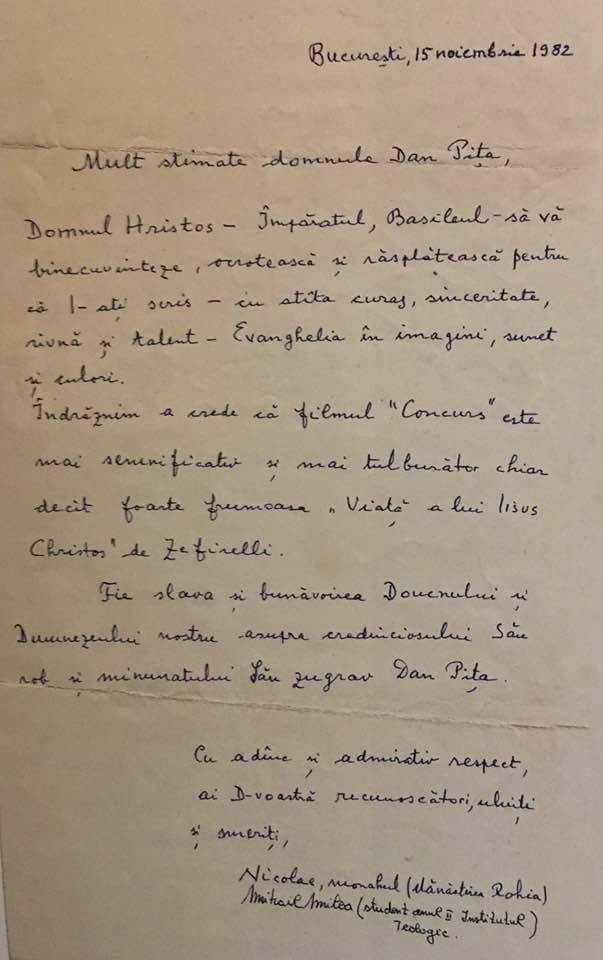 București, 15 noiembrie 1982
Mult stimate domnule Dan Pița,
Domnul Hristos – Împăratul, Basileul – să vă
binecuvinteze, ocrotească și răsplătească pentru
că l-ați scris – cu atîta curaj, sinceritate,
rîvnă și talent – Evanghelia în imagini, sunet
și culori.
Îndrăznim a crede că filmul "Concurs" este
mai semnificativ și mai tulburător chiar
decît foarte frumoasa „Viață a lui Iisus
Christos" de Zefirelli.
Fie slava și bunăvoirea Domnului și
Dumnezeului nostru asupra credinciosului Său
rob și minunatului Său zugrav Dan Pița.
Cu adînc și admirativ respect,
ai D-voastră recunoscători, uluiți
și smeriți,
Nicolae, monahul (Mănăstirea Rohia)
Mihail Milea (student anul II Institutul
Teologic.)